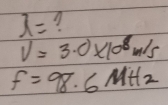 λ = ?
V = 3.0 × 10⁸ m/s
f = 98.6 MHz